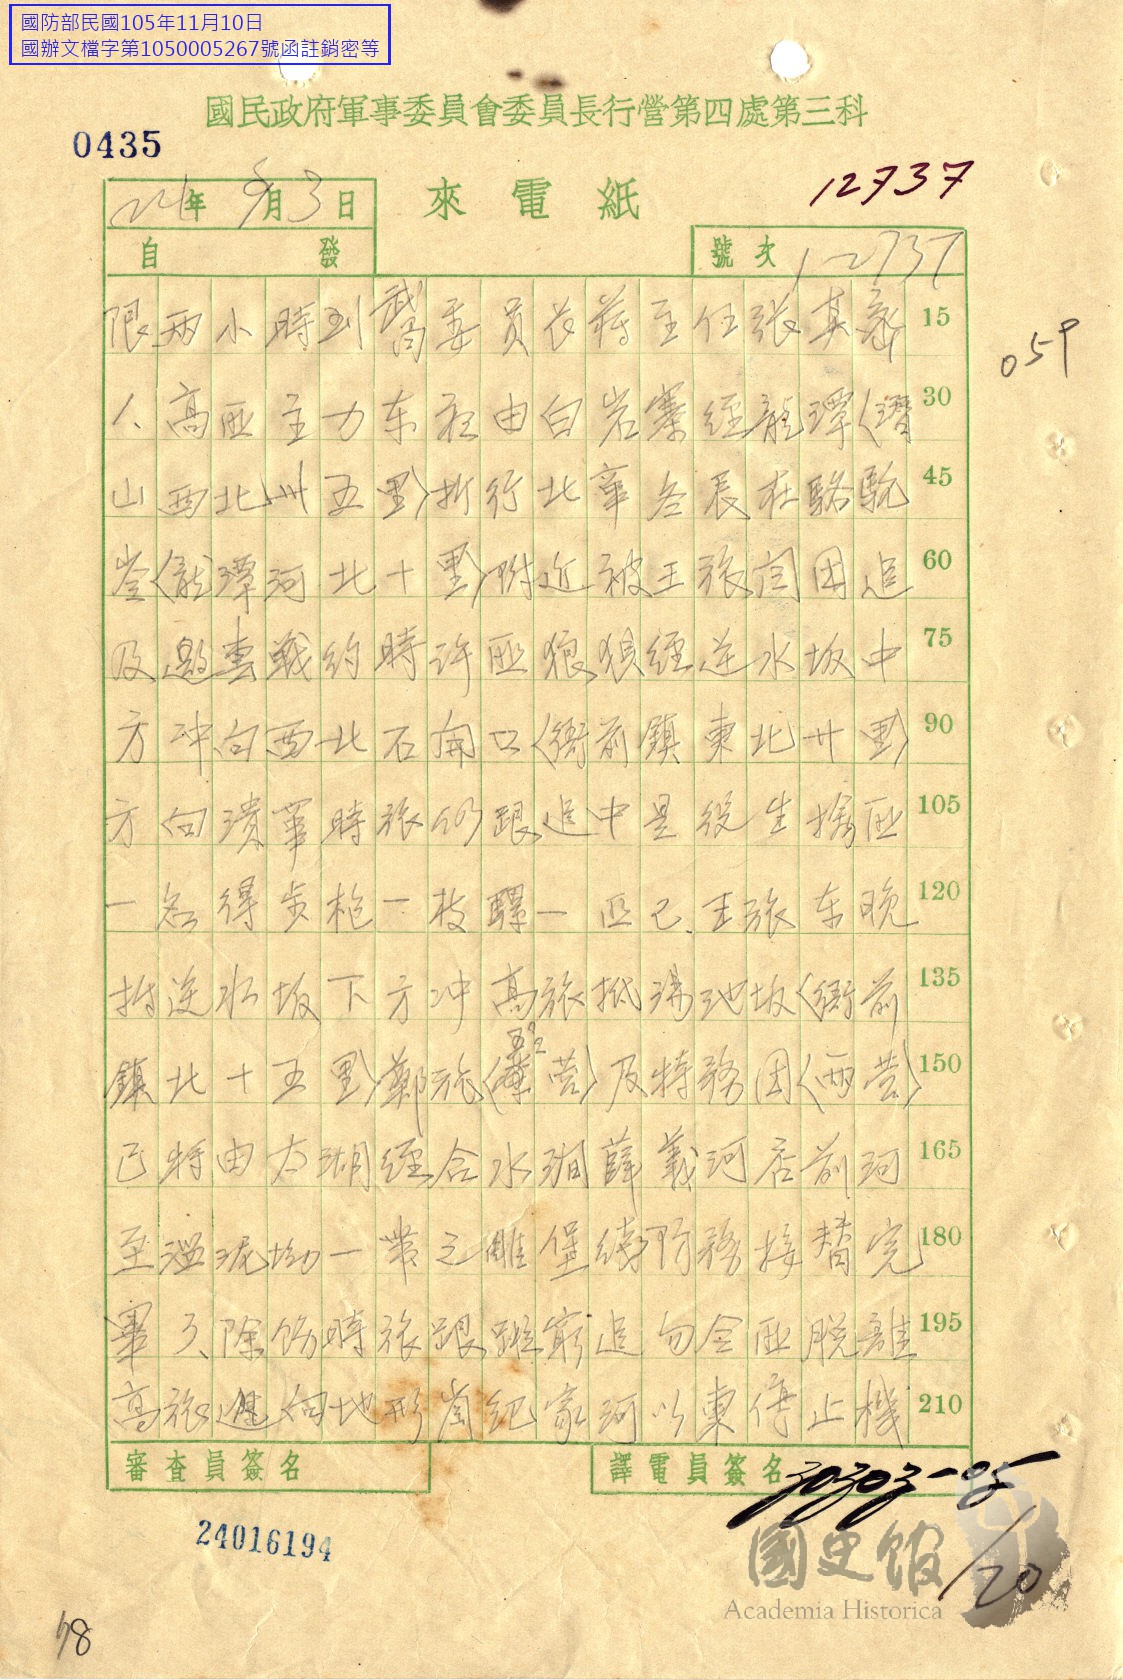 國防部民國105年11月10日
國辦文檔字第1050005267號函註銷密等
國民政府軍事委員會委員長行營第四處第三科
0435
24年9月3日
來電紙
12737
自 發
號次 12737
059
限兩小時到 委員長蔣主任張其 15
高匪主力東夜由白岩寨經龍潭(潛 30
山西北卅五里)折行北 辰在駱駝 45
(龍潭河北十里)附近被王張 團追 60
及 戰約時許匪狼狽經逆水坂中 75
方冲向西北石開口(衙前鎮東北廿里) 90
方向潰 時張仍跟追中是役生擒匪 105
一名得步枪一枝驛一匹已王張东晚 120
折逆水坂下方冲高旅抵 池坂(衙前 135
鎮北十五里)鄭旅( 营)及特務团(两营) 150
已特由太湖經合水澗薛義河店前河 165
至溫泥坳一带之雕堡線防務接替完 180
畢 除飭時張跟踪窮追勿令匪脱離 195
高旅進向地形岗紀家河以東停止機 210
審查員簽名
譯電員簽名
30303-05
/20
24016194
國史館
Academia Historica
98